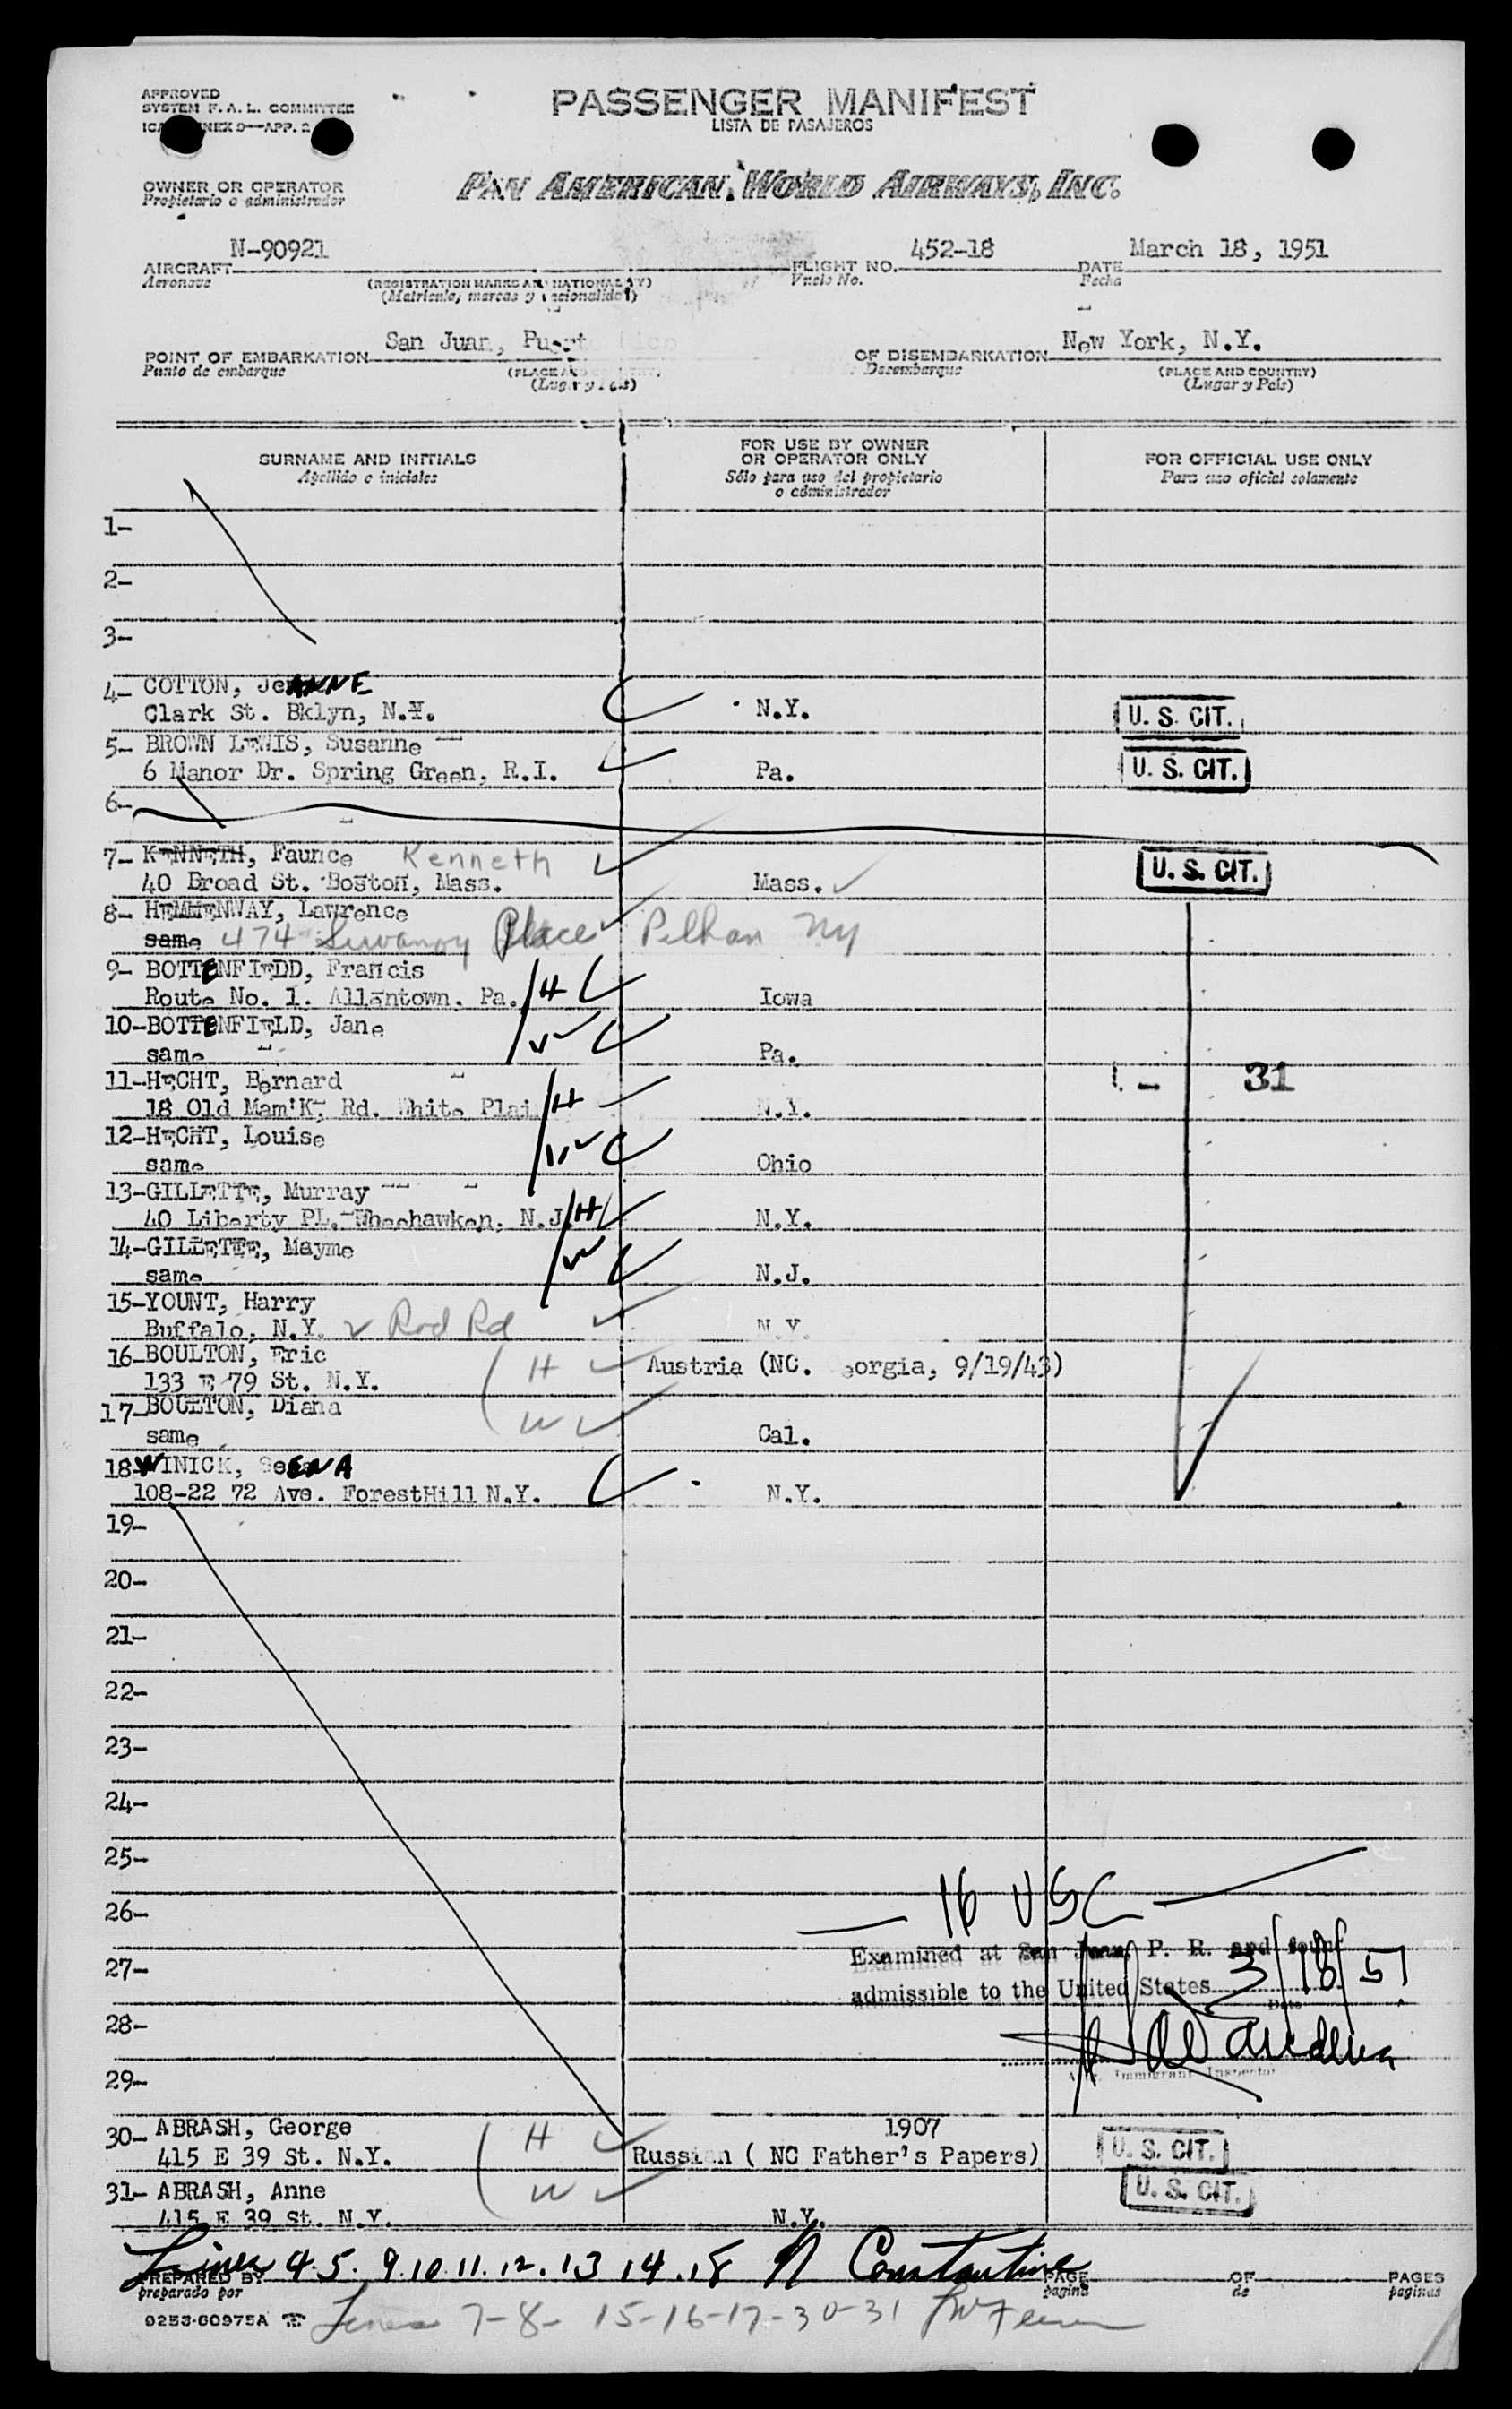 APPROVED
SYSTEM F. A. L. COMMITTEE
9—APP. 2
PASSENGER MANIFEST
LISTA DE PASAJEROS
OWNER OR OPERATOR
Propietario o administrador
PAN AMERICAN WORLD AIRWAYS, INC.
AIRCRAFT N-90921 FLIGHT NO. 452-18 DATE March 18, 1951
Aeronave (REGISTRATION MARKS AND NATIONALITY) Vuelo No. Fecha
(Matricula, marcas y nacionalidad)
POINT OF EMBARKATION San Juan, Puerto Rico OF DISEMBARKATION New York, N.Y.
Punto de embarque Desembarque (PLACE AND COUNTRY)
(Lugar y País) (Lugar y País)
SURNAME AND INITIALS FOR USE BY OWNER OR OPERATOR ONLY FOR OFFICIAL USE ONLY
Apellido e iniciales Sólo para uso del propietario o administrador Para uso oficial solamente
1-
2-
3-
4- COTTON, JeANNE
Clark St. Bklyn, N.Y. N.Y. U. S. CIT.
5- BROWN LEWIS, Susanne
6 Manor Dr. Spring Green, R.I. Pa. U. S. CIT.
6-
7- KENNETH, Faunce Kenneth
40 Broad St. Boston, Mass. Mass. U. S. CIT.
8- HEMMENWAY, Lawrence
same 474 Place Pelham NY
9- BOTTENFIEDD, Francis
Route No. 1. Allentown. Pa. H Iowa
10-BOTTENFIELD, Jane
same W Pa.
11-HECHT, Bernard 31
18 Old Mam'K, Rd. White Plai H N.Y.
12-HECHT, Louise
same W Ohio
13-GILLETTE, Murray
40 Liberty PL. Wheehawken, N.J. H N.Y.
14-GILLETTE, Mayme
same W N.J.
15-YOUNT, Harry
Buffalo, N.Y. Rd N.Y.
16-BOULTON, Eric H Austria (NC. eorgia, 9/19/43)
133 E 79 St. N.Y.
17-BOULTON, Diana W
same Cal.
18-WINICK, SeENA
108-22 72 Ave. ForestHill N.Y. N.Y.
19-
20-
21-
22-
23-
24-
25-
26-
— 16 USC —
27-
Examined at San Juan, P. R. and found
admissible to the United States 3/18/51
Date
28-
Immigrant Inspector
29-
30- ABRASH, George H 1907
415 E 39 St. N.Y. Russian ( NC Father's Papers) U. S. CIT.
31- ABRASH, Anne W U. S. CIT.
415 E 39 St. N.Y. N.Y.
Lines 4.5. 9.10.11.12.13 14.18 Constantine
PREPARED BY PAGE OF PAGES
preparado por pagina de paginas
0253-60975A Lines 7-8- 15-16-17-30-31